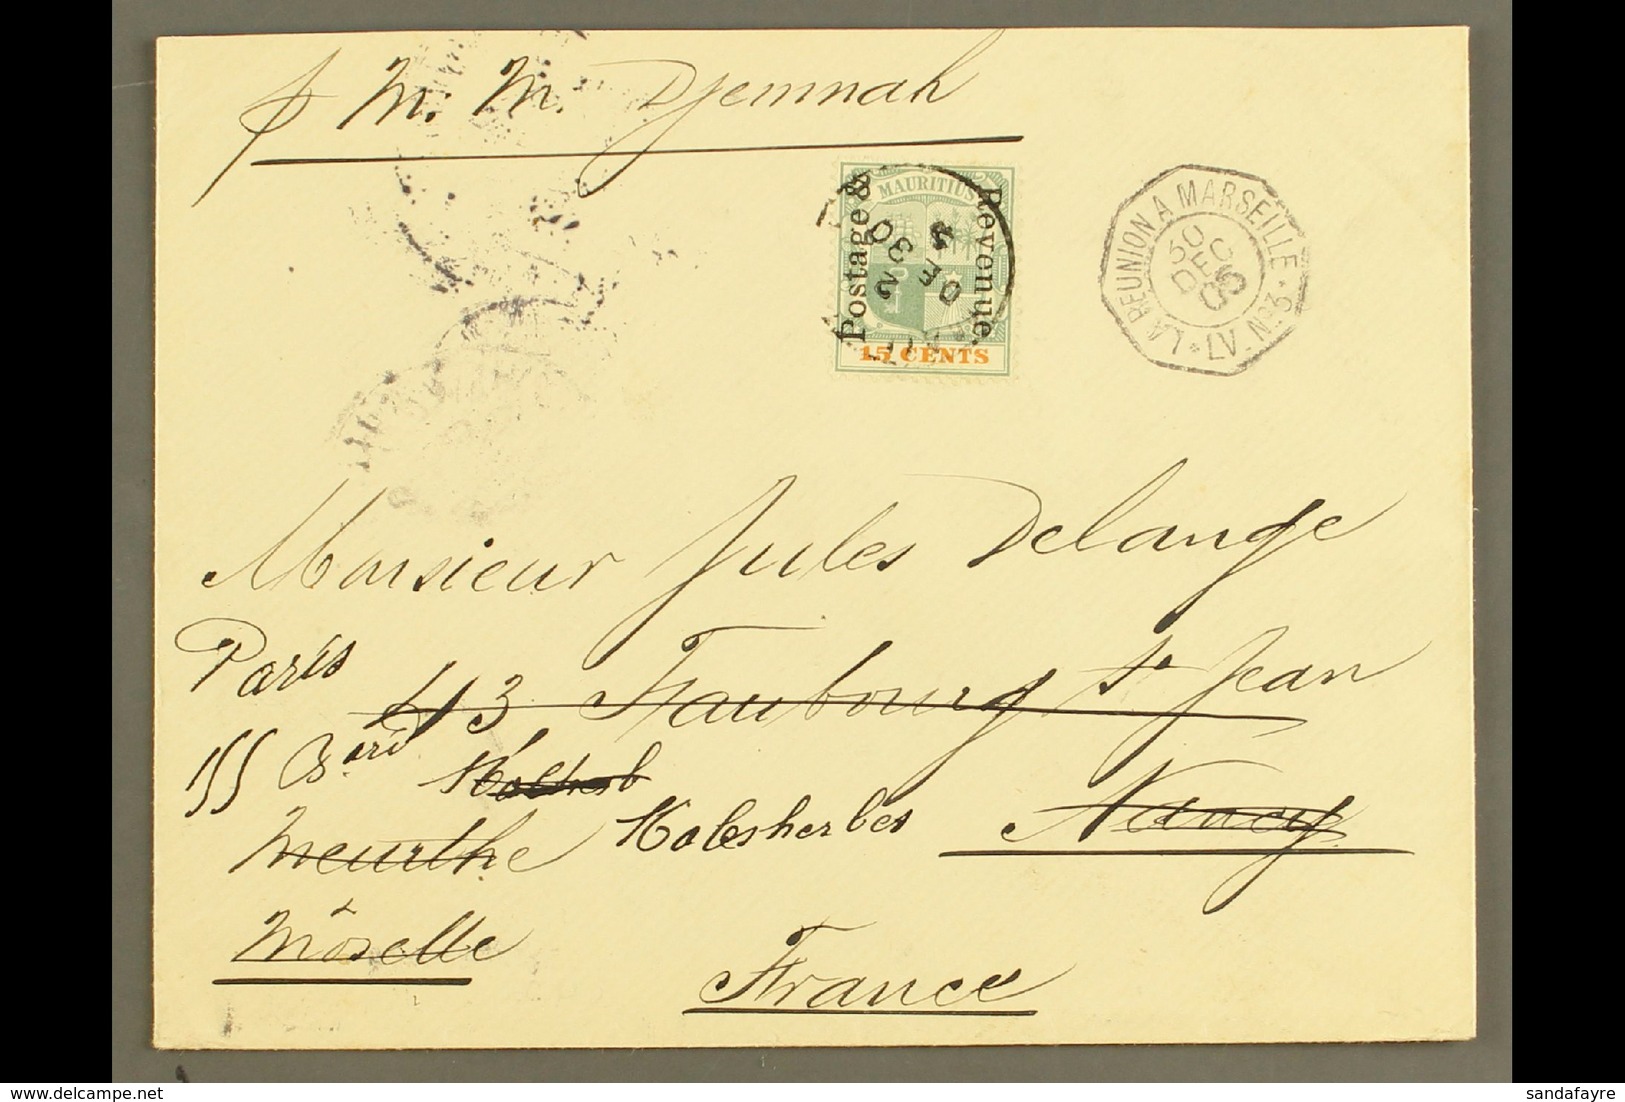 p M. M. Djemnah
MAURITIUS
Postage &
Revenue
15 CENTS
LA REUNION A MARSEILLE
30
DEC
05
LV. No 3
Monsieur Jules Delange
Paris
43 Faubourg St Jean
155 Bard
Malesherbes
Nancy
Meurthe
Moselle
France
sandafayre